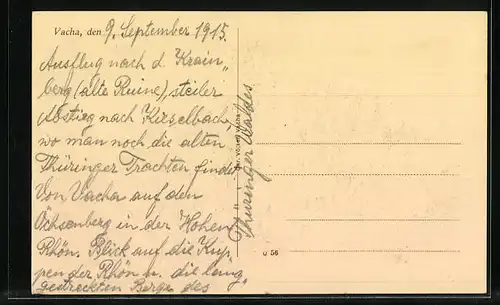 Vacha, den 9. September 1915.
Ausflug nach d. Krain„
berg (alte Ruine), steiler
Abstieg nach Kieselbach,
wo man noch die alten
Thüringer Trachten findet
Von Vacha auf den
Öchsenberg in der Hohen
Rhön. Blick auf die Kup„
pen der Rhön u. die lang„
gestreckten Berge des
Thüringer Waldes
G 56